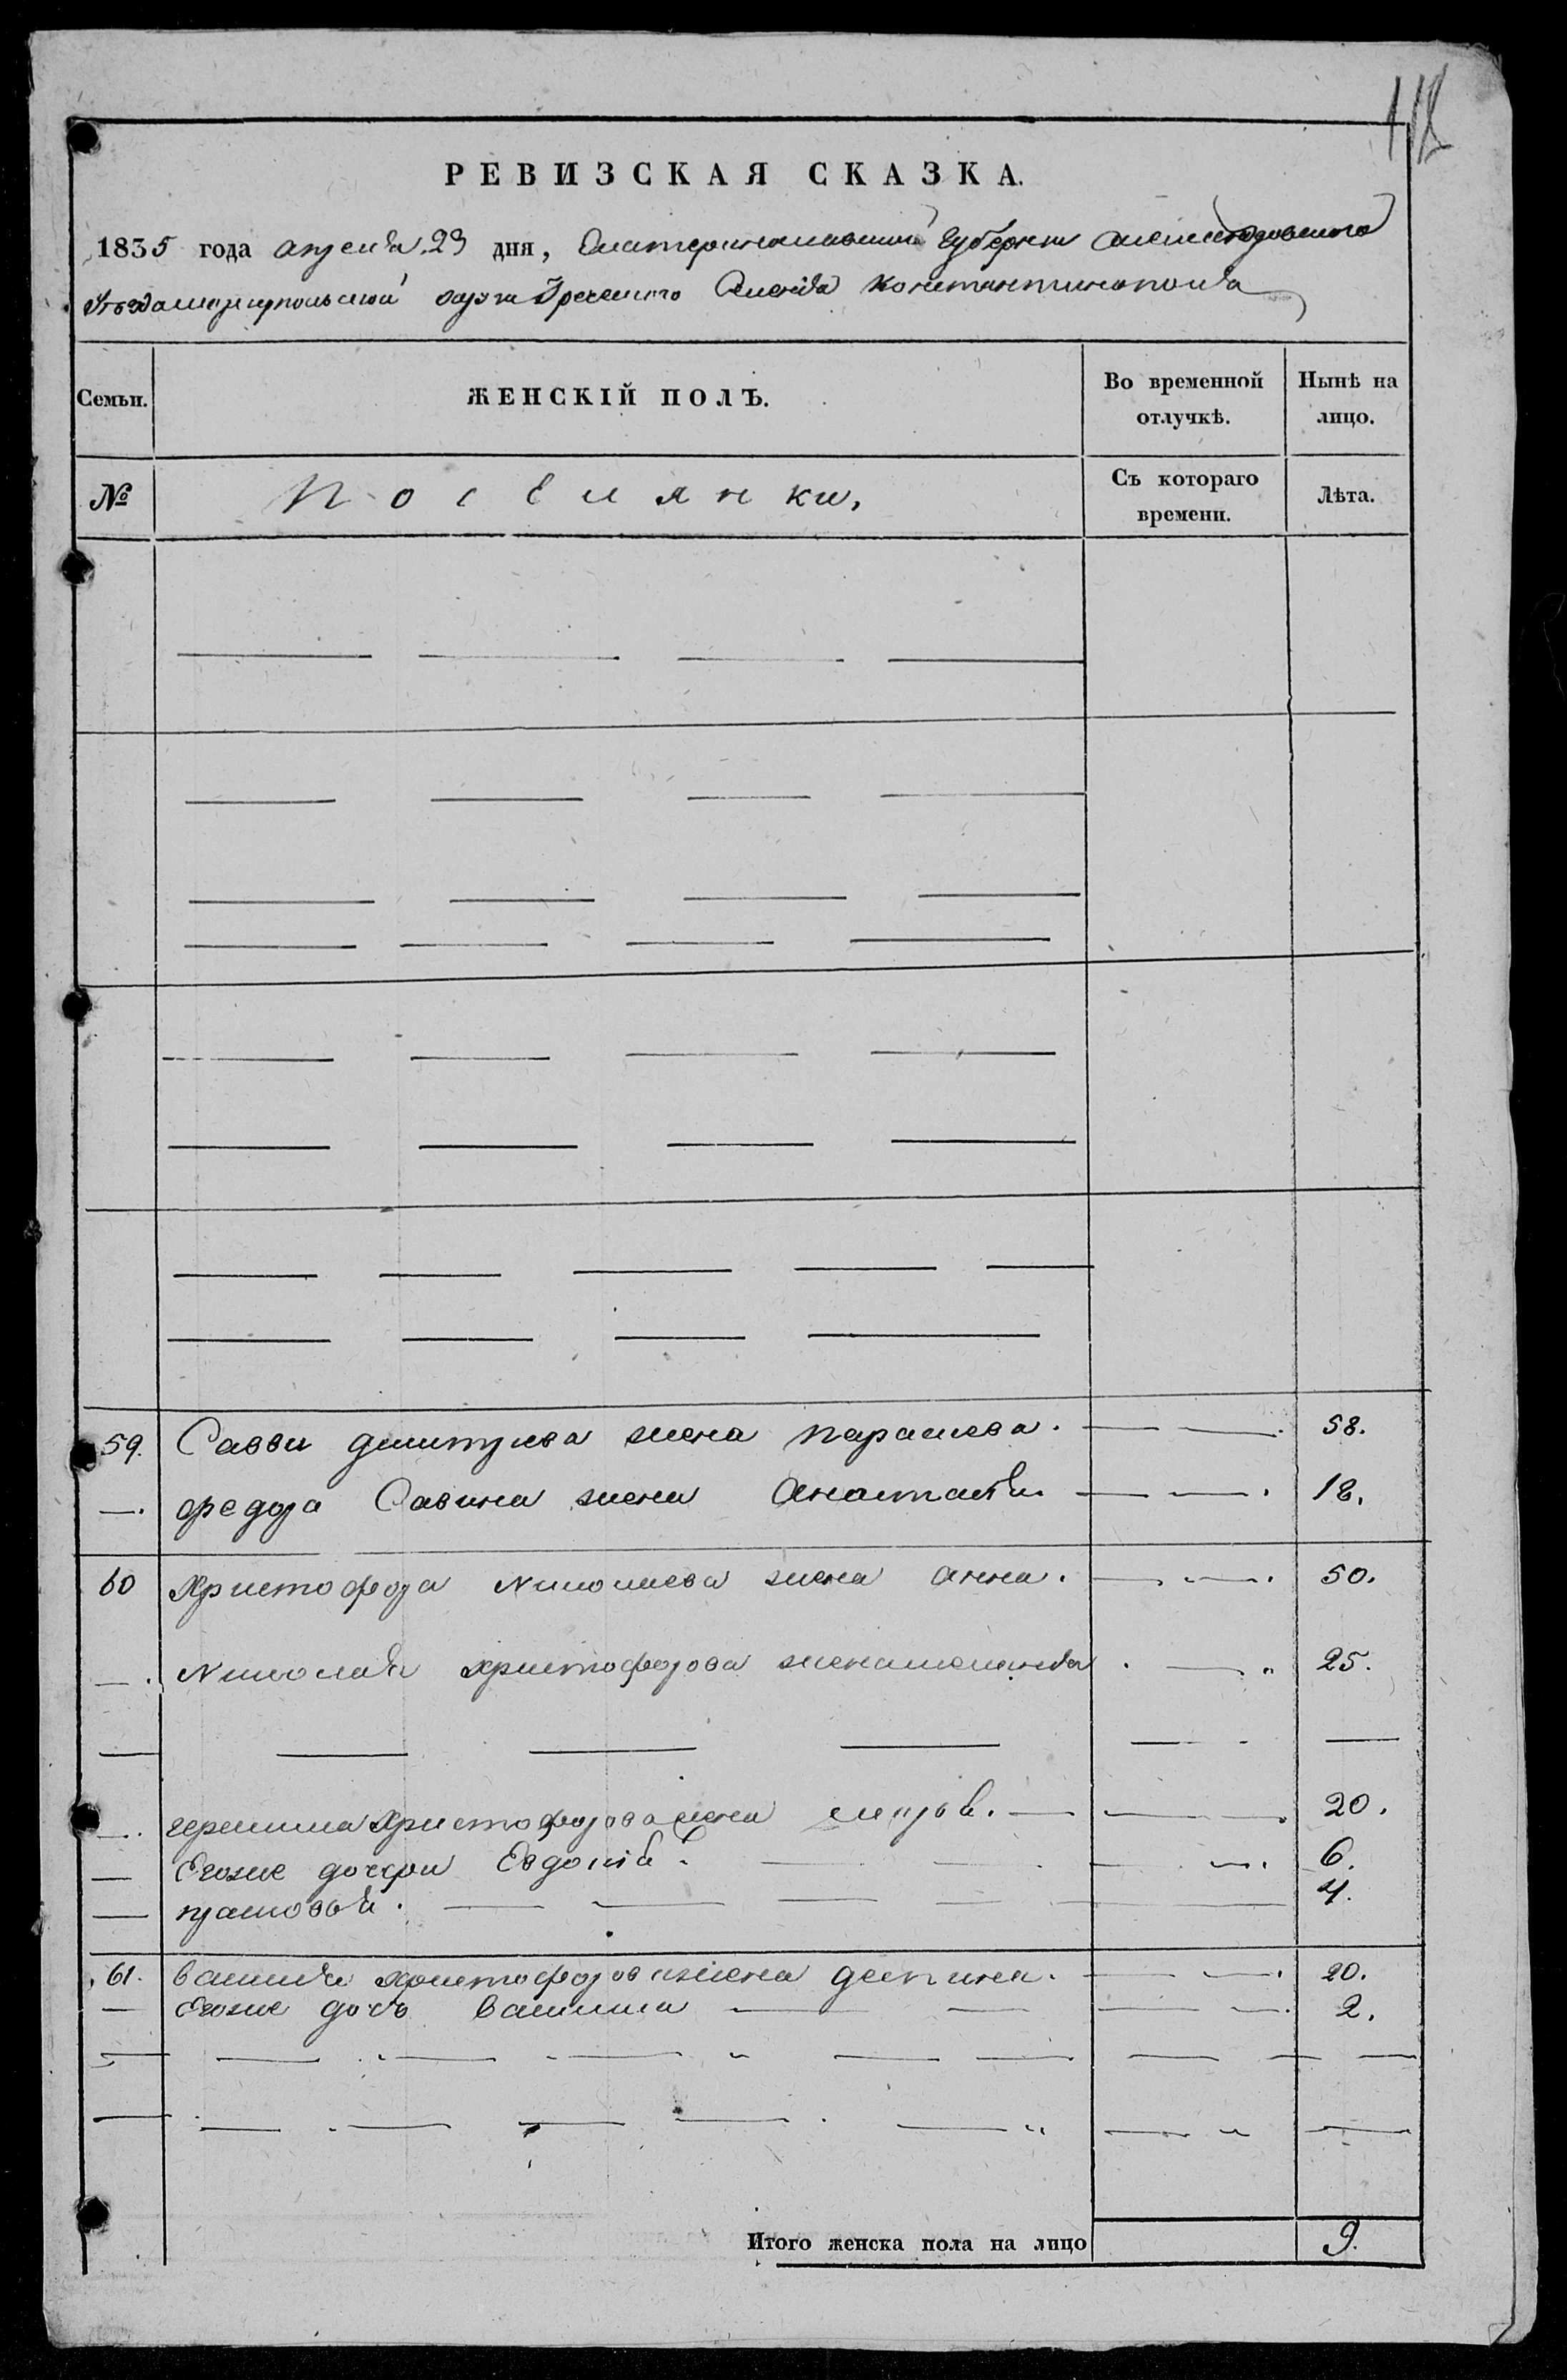 118
РЕВИЗСКАЯ СКАЗКА.
1835 года апреля 23 дня, Екатеринославской Губернии Александровского
уезда мариупольской округи Греческого Селенiя Константинополя
Семьи.
ЖЕНСКIЙ ПОЛЪ.
Во временной отлучкѣ.
Нынѣ на лицо.
№
Поселянки,
Съ котораго времени.
Лѣта.
59. Савви дмитриева жена парашева. 58.
федора Савина жена Анастасiя 18.
60 Христофора Николаева жена анна. 50.
Николая христофорова жена 25.
Христофорова жена 20.
Егоже дочери Евдокiя. 6.
4.
61. василия христофорова жена деспина. 20.
Егоже дочь василиса 2.
Итого женска пола на лицо 9.